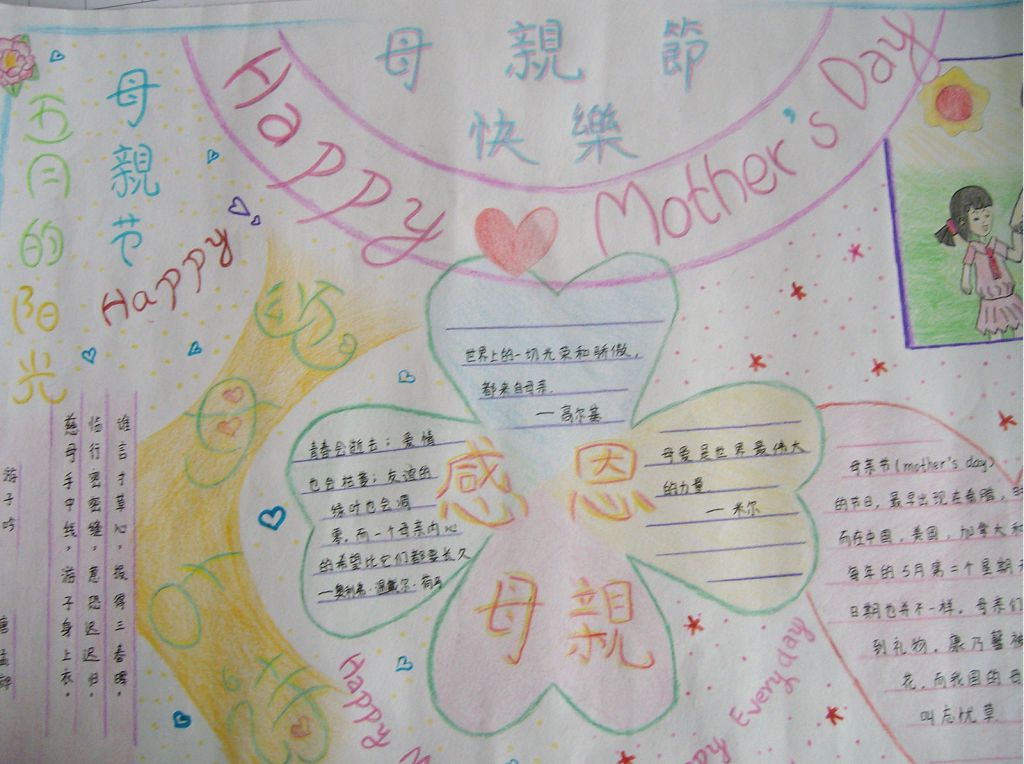 母親節
快樂
Happy Mother's Day
母親节
Happy
五月的阳光
游子吟
唐 孟郊
慈母手中线，游子身上衣。
临行密密缝，意恐迟迟归。
谁言寸草心，报得三春晖。
世界上的一切光荣和骄傲，
都来自母亲.
—高尔基
感恩
母親
青春会逝去；爱情
也会枯萎；友谊的
绿叶也会凋
零，而一个母亲内心
的希望比它们都要长久
—奥利弗·温戴尔·荷马
母爱是世界最伟大
的力量.
—米尔
母亲节(mother's day)
的节日，最早出现在希腊，
而在中国，美国，加拿大和
每年的5月第二个星期
日期也并不一样。母亲们
到礼物，康乃馨被
花，而我国的
叫忘忧草.
Happy
Every day